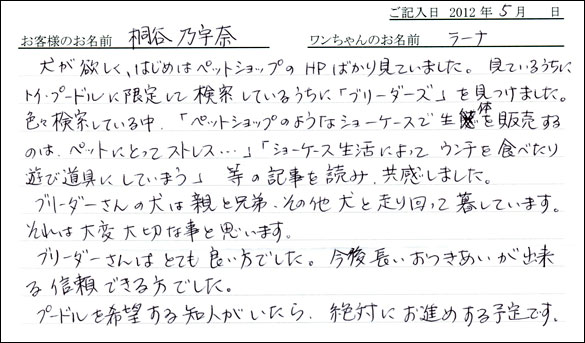 ご記入日 2012 年 5 月 日
お客様のお名前 桐谷 乃宇奈 ワンちゃんのお名前 ラーナ
犬が欲しく、はじめはペットショップの HP ばかり見ていました。見ているうちに
トイ・プードルに限定して検察しているうちに「ブリーダーズ」を見つけました。
色々検察している中、「ペットショップのようなショーケースで生体を販売する
のは、ペットにとってストレス…」「ショーケース生活によって ウンチを食べたり
遊び道具にしていまう」等の記事を読み、共感しました。
ブリーダーさんの犬は親と兄弟、その他犬と走り回って暮しています。
それは大変大切な事と思います。
ブリーダーさんはとても良い方でした。今後長いおつきあいが出来
る信頼できる方でした。
プードルを希望する知人がいたら、絶対にお進めする予定です。